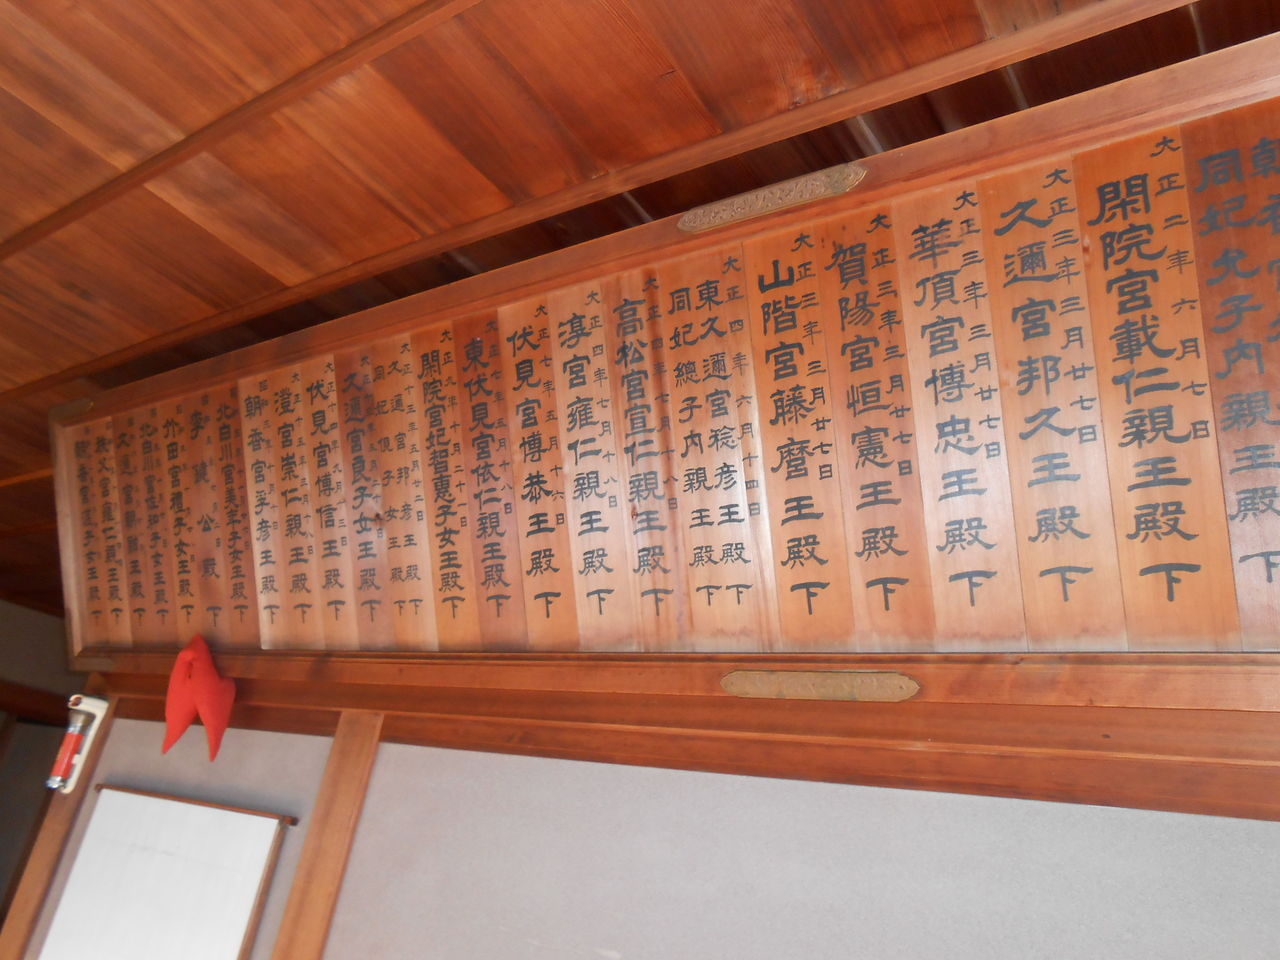 同妃允子内親王殿下
大正二年六月七日
閑院宮載仁親王殿下
大正三年三月廿七日
久邇宮邦久王殿下
大正三年三月廿七日
華頂宮博忠王殿下
大正三年三月廿七日
賀陽宮恒憲王殿下
大正三年三月廿七日
山階宮藤麿王殿下
大正四年六月十四日
東久邇宮稔彦王殿下
同妃總子内親王殿下
大正四年十月十八日
高松宮宣仁親王殿下
大正四年七月十八日
淳宮雍仁親王殿下
大正七年五月十六日
伏見宮博恭王殿下
東伏見宮依仁親王殿下
大正九年十月二十一日
閑院宮妃智惠子女王殿下
大正十三年五月廿二日
久邇宮邦彦王殿下
同妃俔子女王殿下
久邇宮良子女王殿下
伏見宮博信王殿下
澄宮崇仁親王殿下
朝香宮孚彦王殿下
北白川宮美年子女王殿下
李鍵公殿下
竹田宮禮子女王殿下
北白川宮佐和子女王殿下